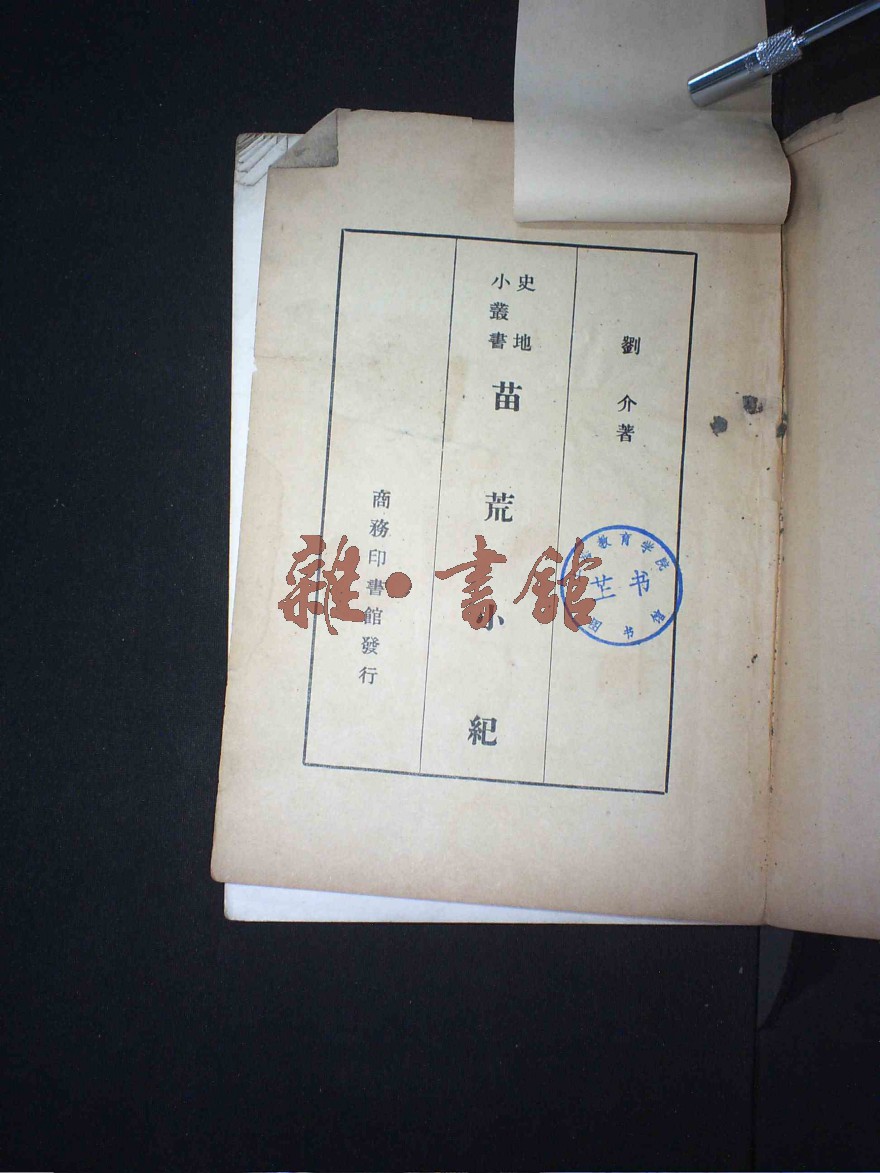 劉介著
史地
小叢書
苗荒小紀
商務印書館發行
雜·書館
教育学院
书
图书馆